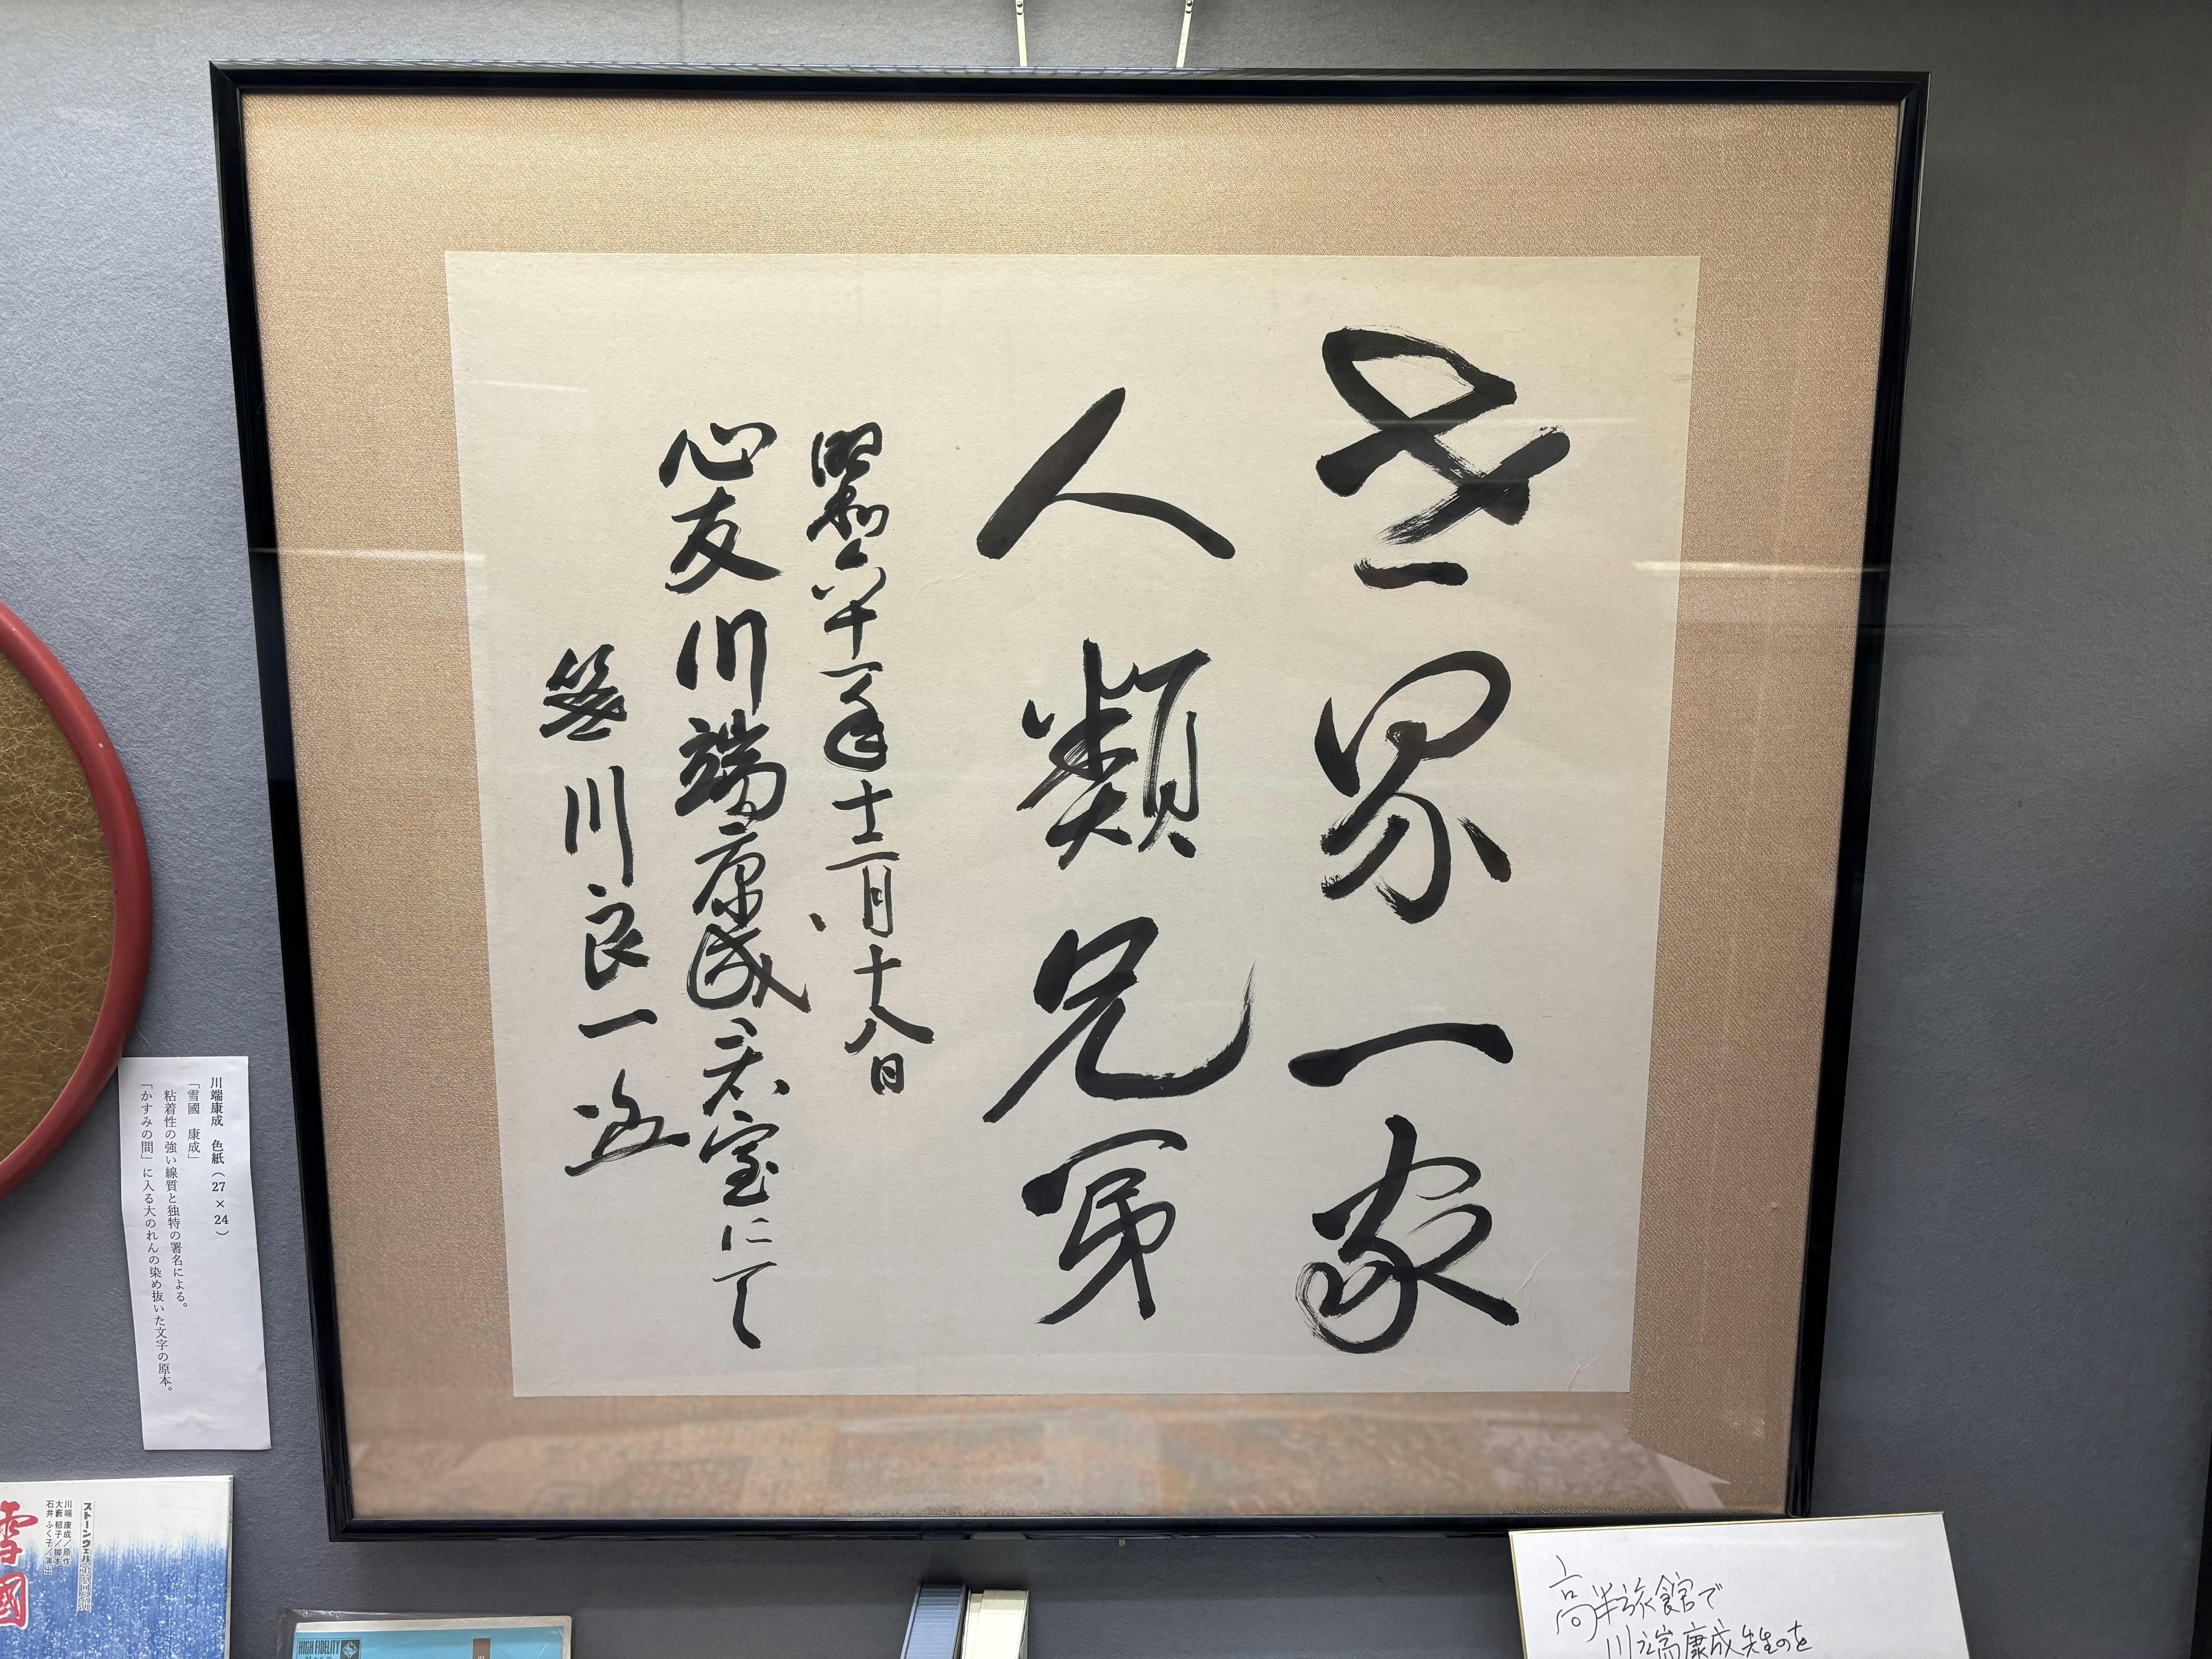 世界一家
人類兄弟
昭和六十一年十二月十八日
心友川端康成君室にて
笹川良一
川端康成 色紙(27×24)
「雪國 康成」
粘着性の強い線質と独特の署名による。
「かすみの間」に入る大のれんの染め抜いた文字の原本。
ストーンウェル
川端 康成/原作
大藪 郁子/脚本
石井 ふく子/演出
雪國
HIGH FIDELITY
高半旅館で
川端康成先生のを